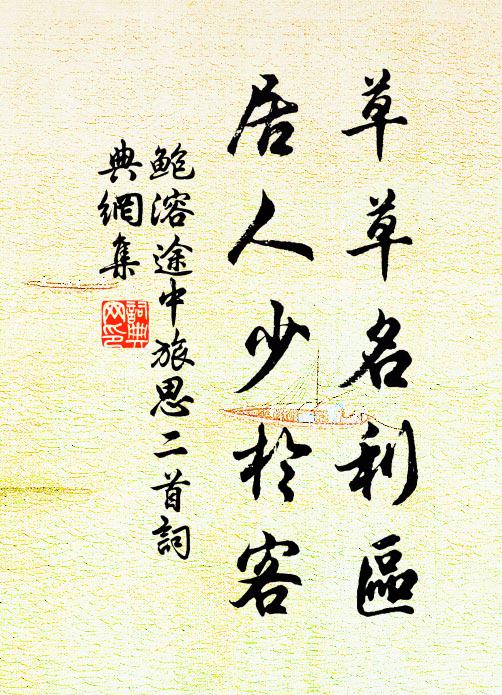 草草名利區
居人少於客
鮑溶途中旅思二首詞
典網集
詞典
网印